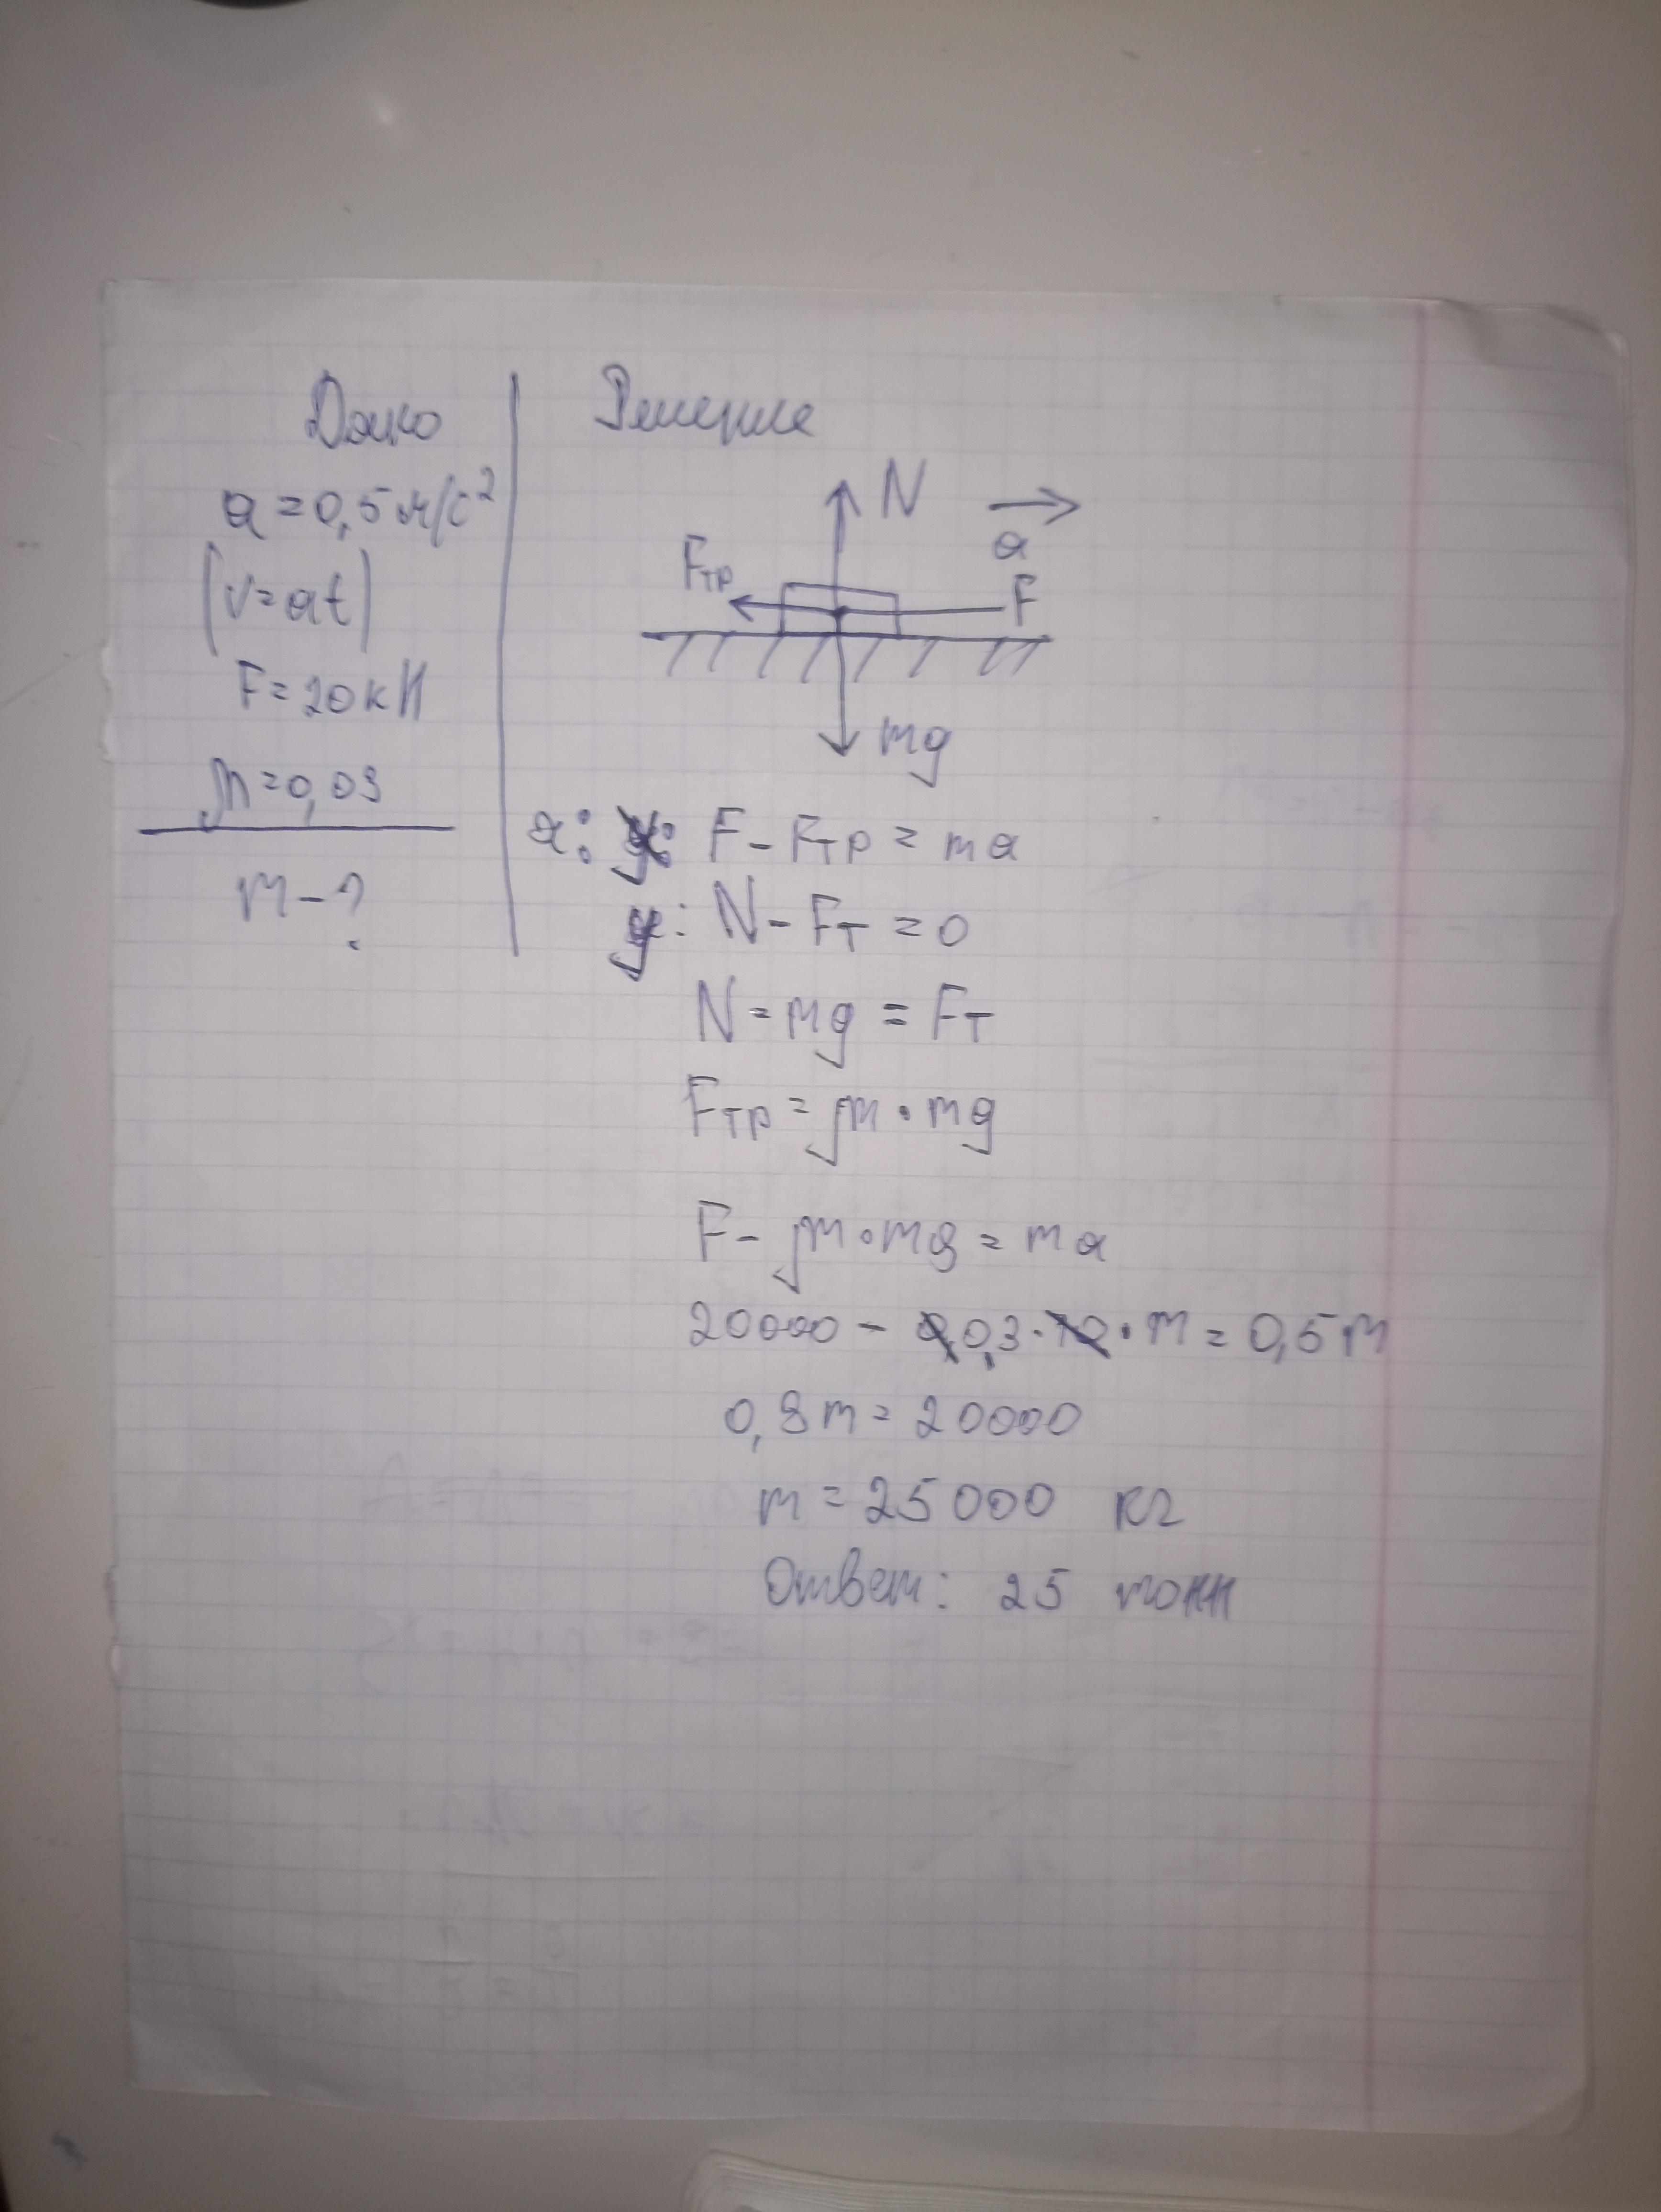 Дано
a = 0,5 м/с²
(v = at)
F = 20 кН
μ = 0,03
m - ?
Решение
N
a
Fтр
F
mg
a: F - Fтр = ma
y: N - Fт = 0
N = mg = Fт
Fтр = μ · mg
F - μ · mg = ma
20000 - 0,03 · 10 · m = 0,5m
0,8m = 20000
m = 25000 кг
Ответ: 25 тонн